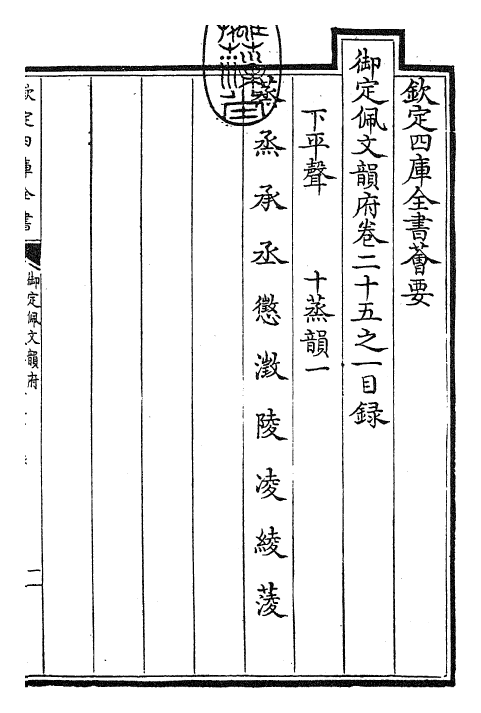 欽定四庫全書薈要
御定佩文韻府卷二十五之一目録
下平聲　　十蒸韻一
蒸烝承丞懲澂陵凌綾蔆
欽定四庫全書
御定佩文韻府